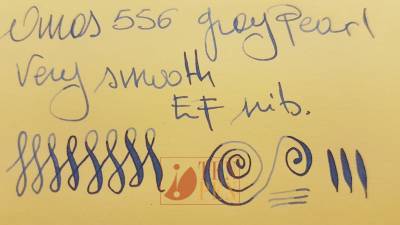 Omas 556 gray Pearl
Very smooth
EF nib.